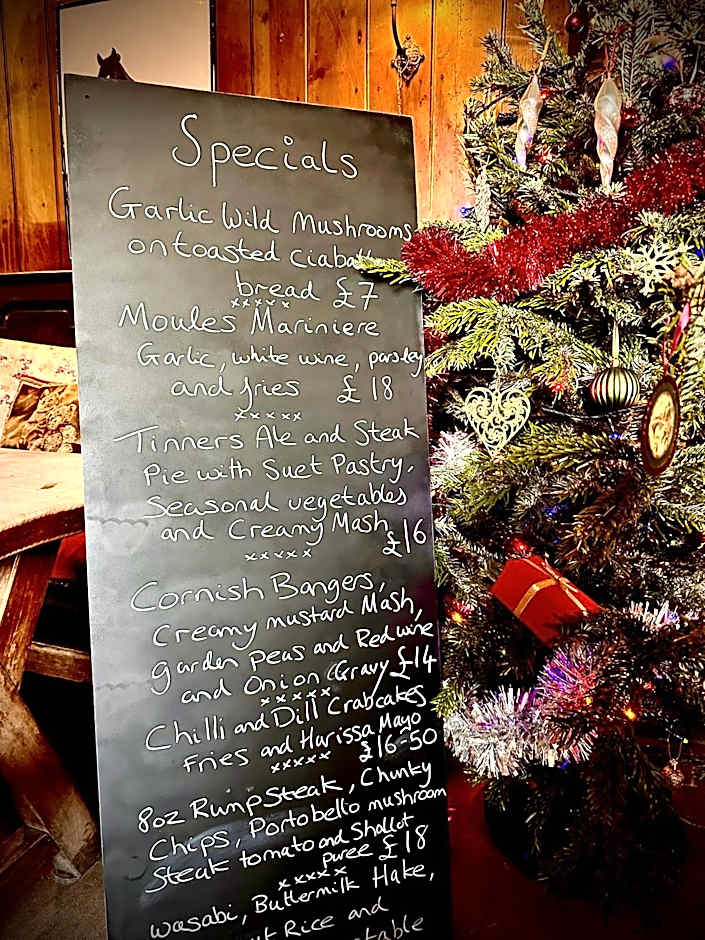 Specials
Garlic Wild Mushrooms
on toasted
bread £7
xxxxx
Moules Mariniere
Garlic, white wine, parsley
and fries £18
xxxxx
Tinners Ale and Steak
Pie with Suet Pastry,
Seasonal vegetables
and Creamy Mash
£16
xxxxx
Cornish Bangers,
Creamy mustard Mash,
garden Peas and Red wine
and Onion Gravy £14
xxxxx
Chilli and Dill Crabcakes
Fries and Harissa Mayo
£16-50
xxxxx
8oz Rump Steak, Chunky
Chips, Portobello mushroom
Steak tomato and Shallot
puree £18
xxxxx
Wasabi, Buttermilk Hake,
Rice and